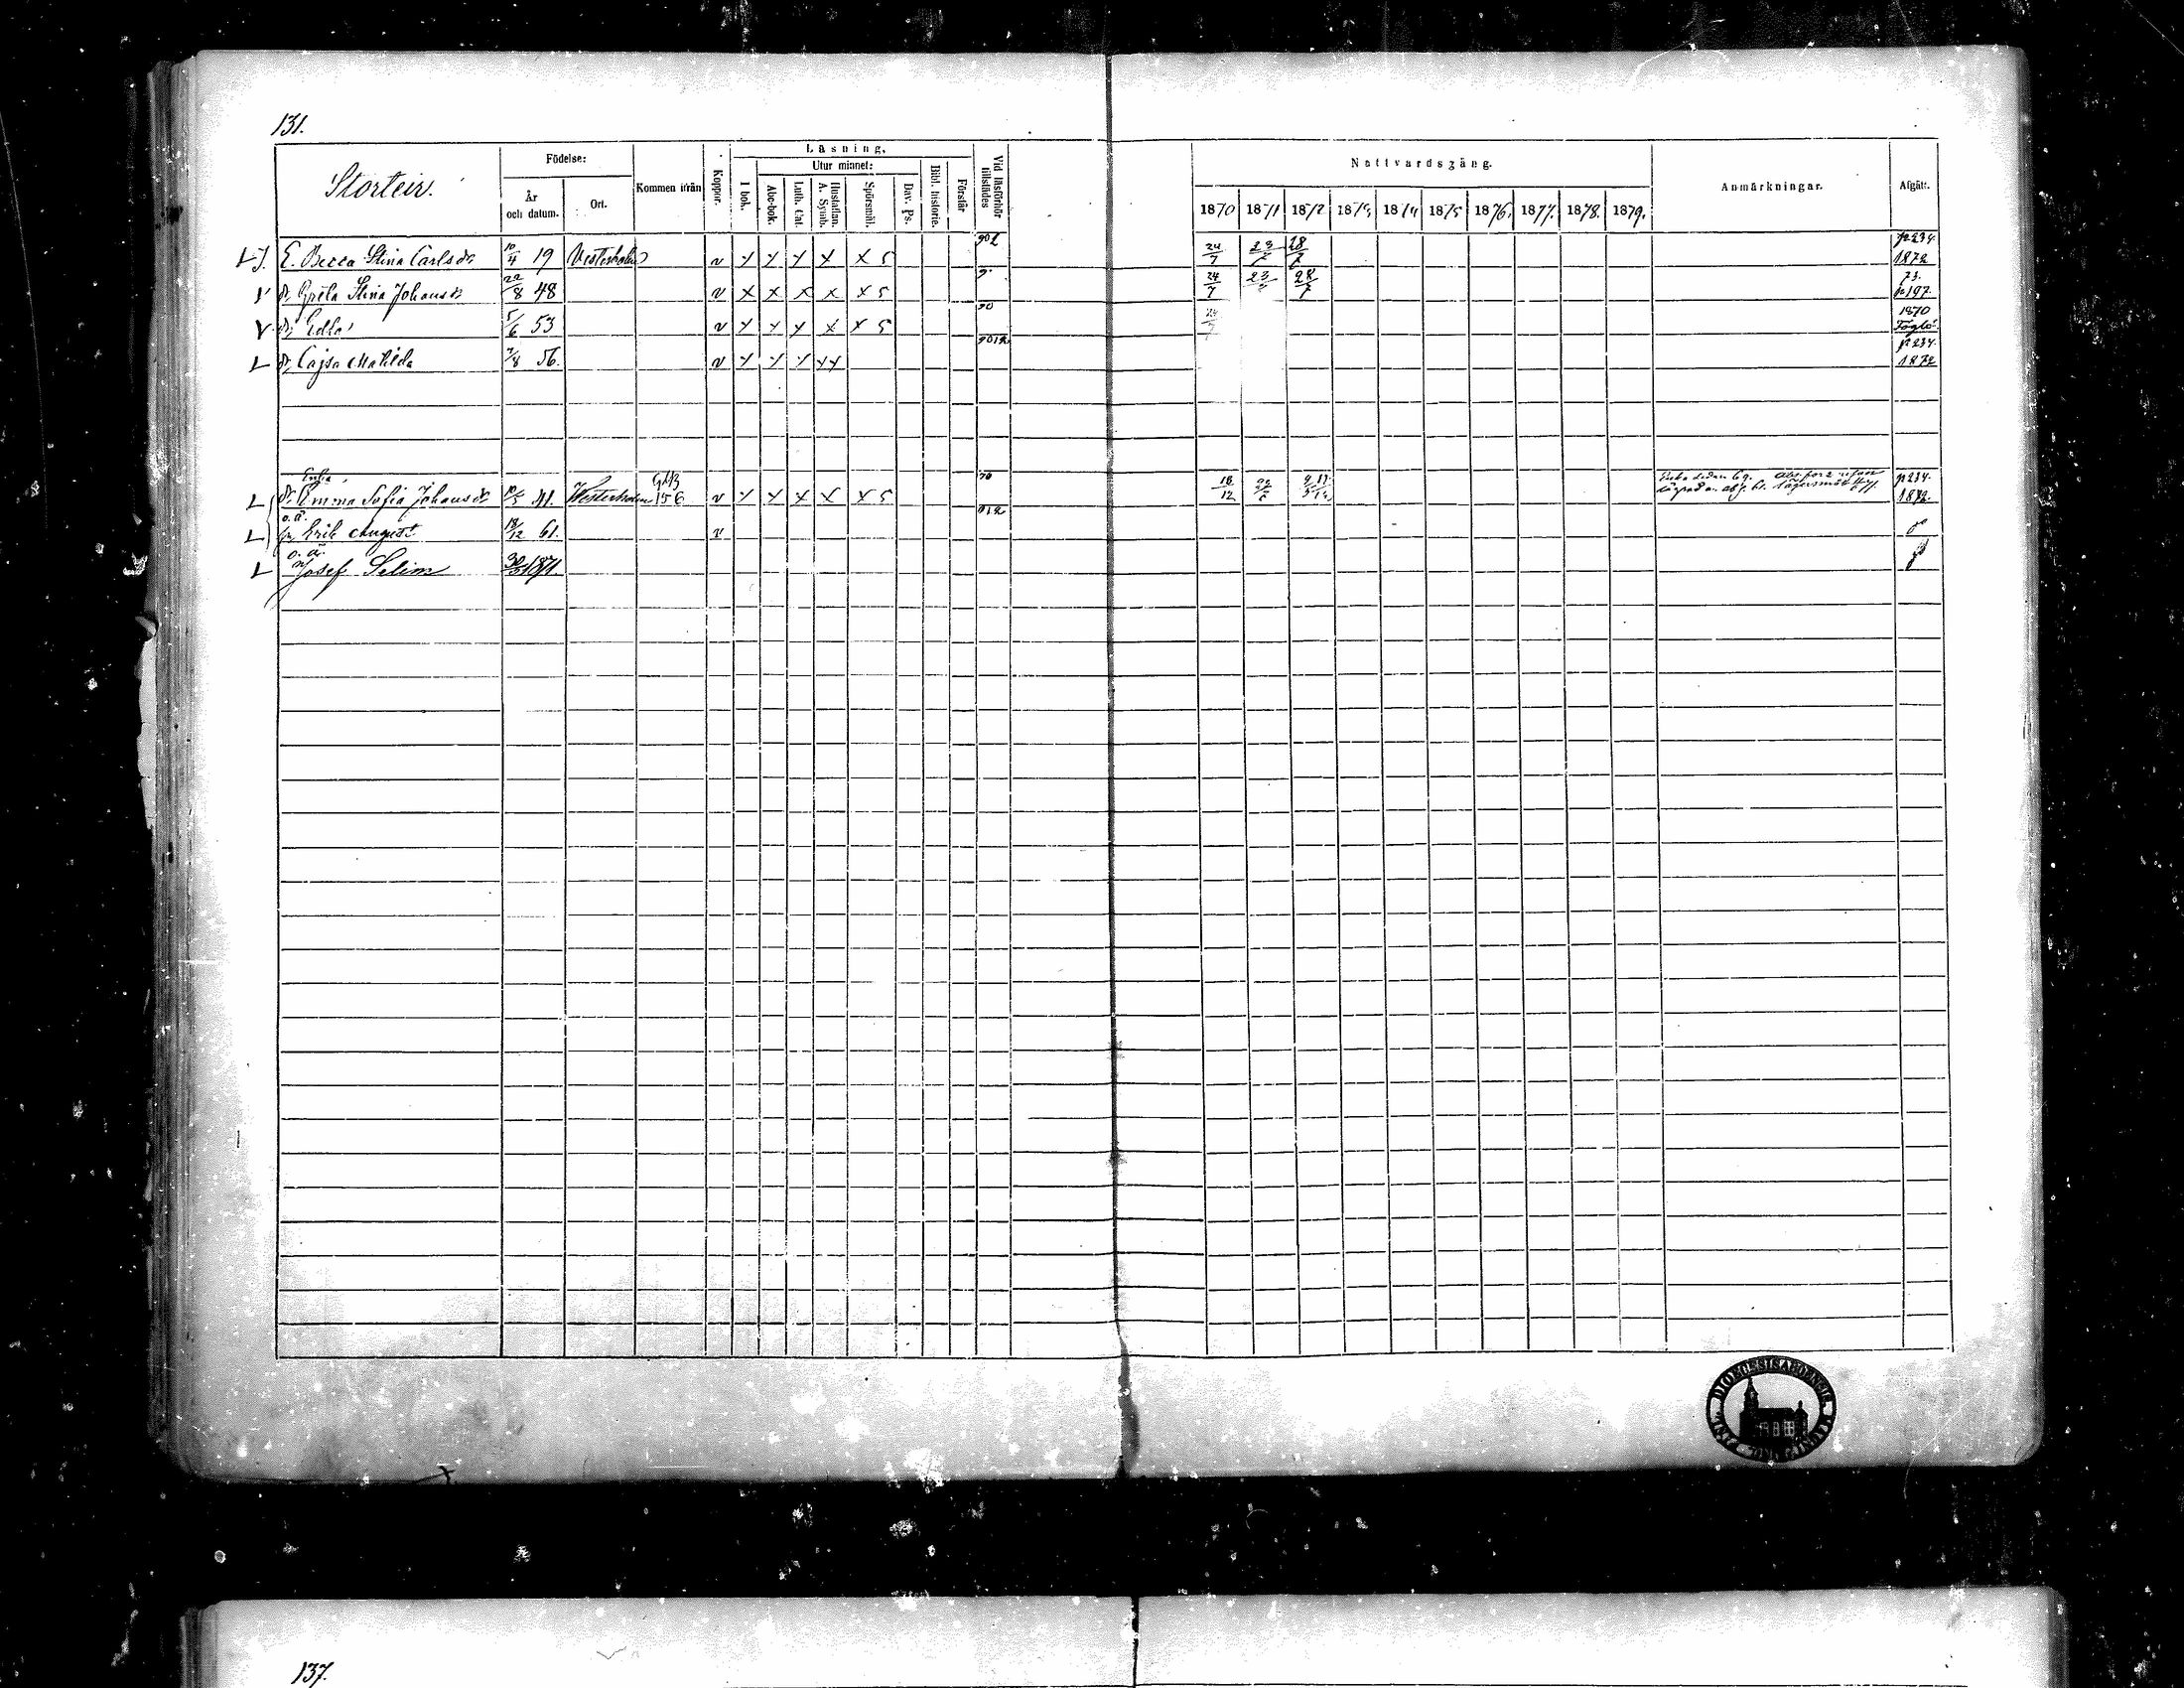 131.
Storteir.
Födelse:
År och datum.
Ort.
Kommen ifrån
Koppor.
Läsning.
I bok.
Utur minnet:
Abc-bok.
Luth. Cat.
Hustaflan. A. Symb.
Spörsmål.
Dav. Ps.
Bibl. historie.
Förstår
Vid läsförhör tillstädes
Nattvardsgång.
1870 1871 1872 1873, 1874 1875 1876, 1877. 1878. 1879.
Anmärkningar.
Afgått.
E. Becca Stina Carlsdr 10/4 19 Vesterholm v x x x x x 5 24/7 23/7 28/7 p 234. 1872
dr Greta Stina Johansdr 20/8 48 v x x x x x 5 24/7 28/7 73. p 197.
dr Edla 5/6 53 v x x x x x 5 70 24/7 1870 Föglö
dr Cajsa Matilda 56. v x x x x x p 234. 1872
Enka
dr Emma Sofia Johansdr 41. Westerholm 156 v x x x x x 5 70 18/12 p 234. 1872.
o.ä.
Erik August 18/12 61. v
o.ä.
Josef Selim 1871.
DIOECESIS ABOENSIS
137.